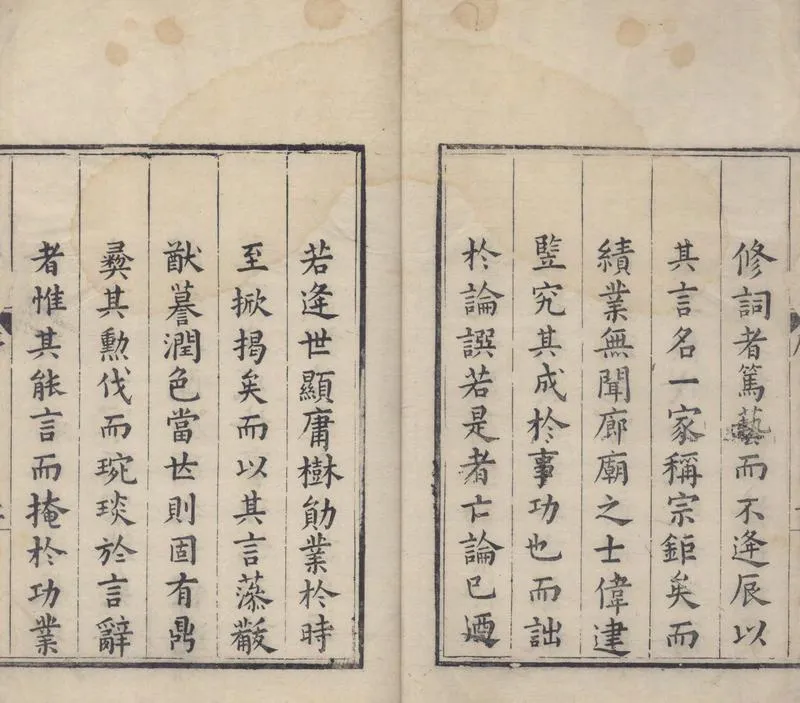 修詞者篤藝而不逢辰以
其言名一家稱宗鉅矣而
績業無聞廊廟之士偉建
竪究其成於事功也而詘
於論譔若是者亡論已迺
若逢世顯庸樹勛業於時
至掀揭矣而以其言藻黻
猷謩潤色當世則固有鼎
彛其勲伐而琬琰於言辭
者惟其能言而掩於功業